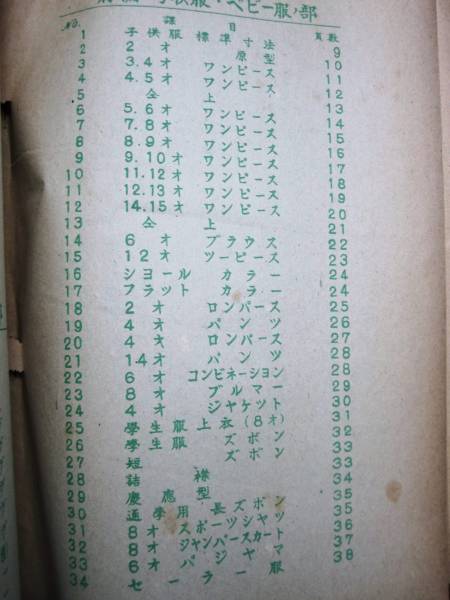 供服・ベビー服ノ部
No. 課目 頁数
1 子供服標準寸法 9
2 2オ 原型 10
3 3.4オ ワンピース 11
4 4.5オ ワンピース 12
5 仝上 13
6 5.6オ ワンピース 14
7 7.8オ ワンピース 15
8 8.9オ ワンピース 16
9 9.10オ ワンピース 17
10 11.12オ ワンピース 18
11 12.13オ ワンピース 19
12 14.15オ ワンピース 20
13 仝上 21
14 6オ ブラウス 22
15 12オ ツーピース 23
16 シヨール カラー 24
17 フラット カラー 24
18 2オ ロンパース 25
19 4オ パンツ 26
20 4オ ロンパース 27
21 1.4オ パンツ 28
22 6オ コンビネーション 28
23 8オ ブルマー 29
24 4オ ジャケツト 30
25 學生服上衣(8オ) 31
26 學生服 ズボン 32
27 短 ズボン 33
28 詰襟 33
29 慶應型 34
30 通學用長ズボン 35
31 8オ スポーツシャツ 35
32 8オ ジャンパースカート 36
33 6オ パジャマ 37
34 セーラー服 38